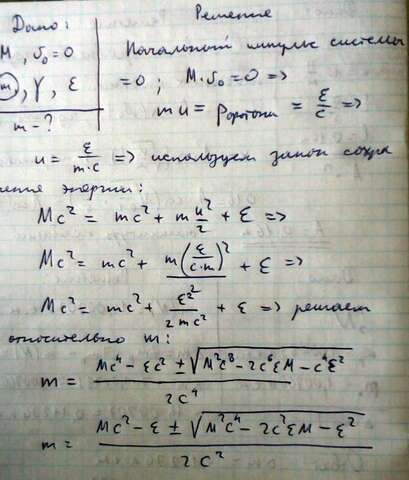 Дано: Решение
M, v₀=0 Начальный импульс системы
m, γ, ε =0; M·v₀=0 =>
m-? mu = Pфотона = ε/c =>
u = ε/(m·c) => используем закон сохра
нения энергии:
Mc² = mc² + m u²/2 + ε =>
Mc² = mc² + m(ε/(c·m))²/2 + ε =>
Mc² = mc² + ε²/(2mc²) + ε => решаем
относительно m:
m = (Mc⁴ - εc² ± √(M²c⁸ - 2c⁶εM - c⁴ε²))/(2c⁴)
m = (Mc² - ε ± √(M²c⁴ - 2c²εM - ε²))/(2c²)